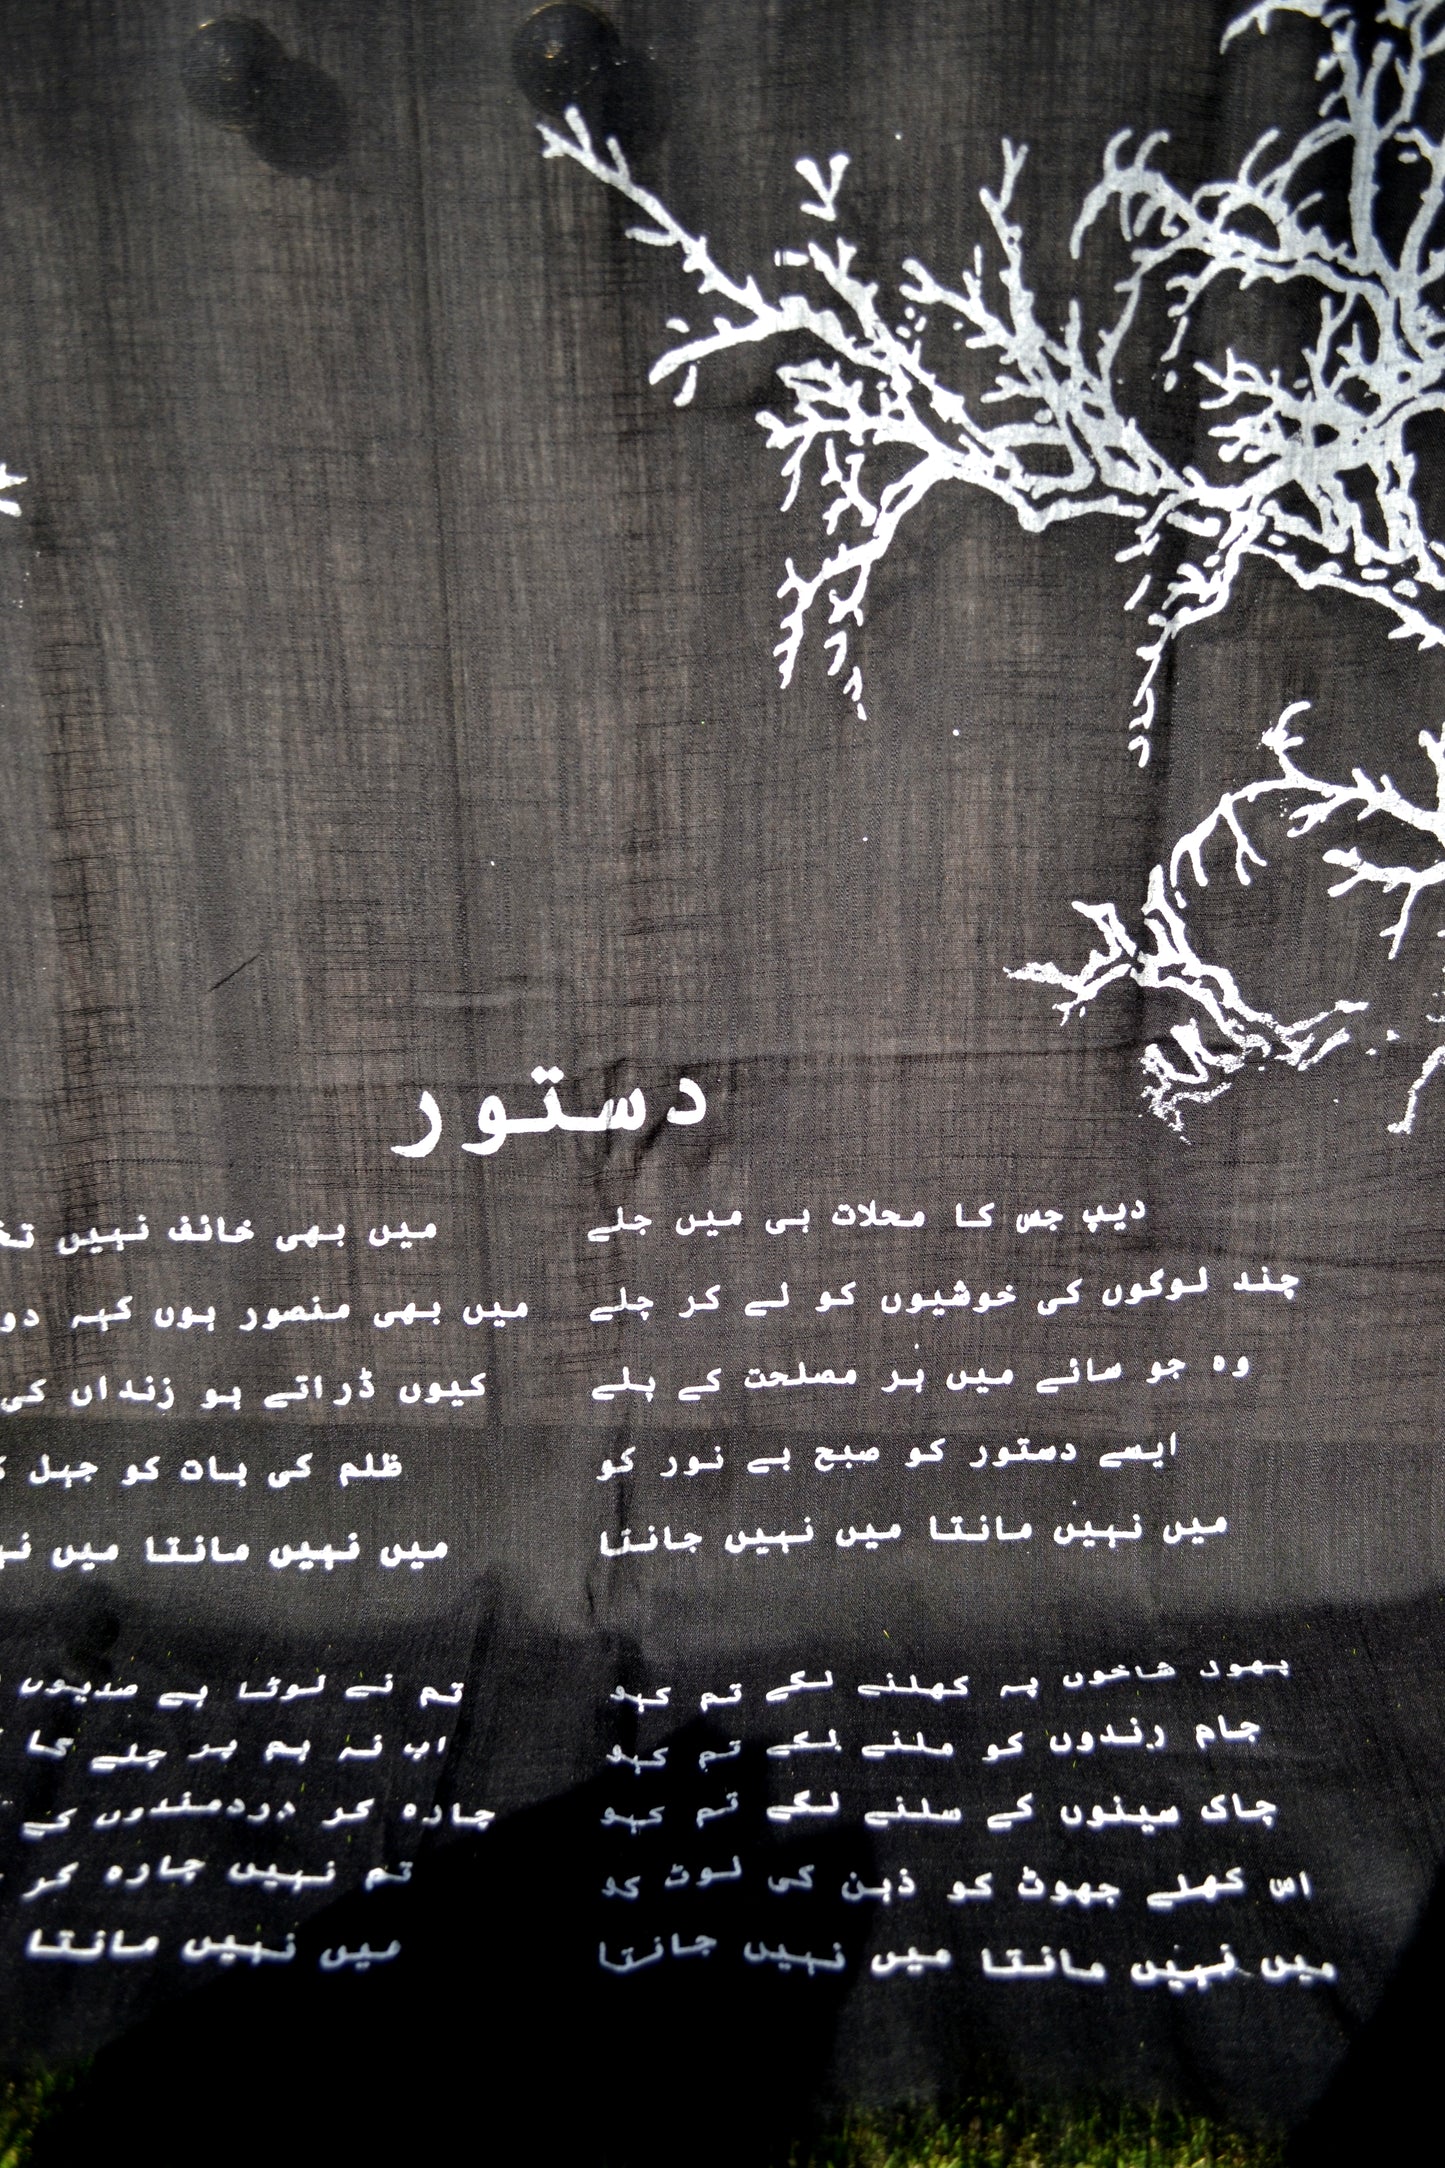 دستور
دیپ جس کا محلات ہی میں جلے
چند لوگوں کی خوشیوں کو لے کر چلے
وہ جو سائے میں ہر مصلحت کے پلے
ایسے دستور کو صبح بے نور کو
میں نہیں مانتا میں نہیں جانتا
میں بھی خائف نہیں
میں بھی منصور ہوں کہہ دو
کیوں ڈراتے ہو زنداں کی
ظلم کی بات کو جہل
میں نہیں مانتا میں
پھول شاخوں پہ کھلنے لگے تم کہو
جام رندوں کو ملنے لگے تم کہو
چاک سینوں کے سلنے لگے تم کہو
اس کھلے جھوٹ کو ذہن کی لوٹ کو
میں نہیں مانتا میں نہیں جانتا
تم نے لوٹا ہے صدیوں
اب نہ ہم پر چلے گا
چارہ گر دردمندوں کے
تم نہیں چارہ گر
میں نہیں مانتا